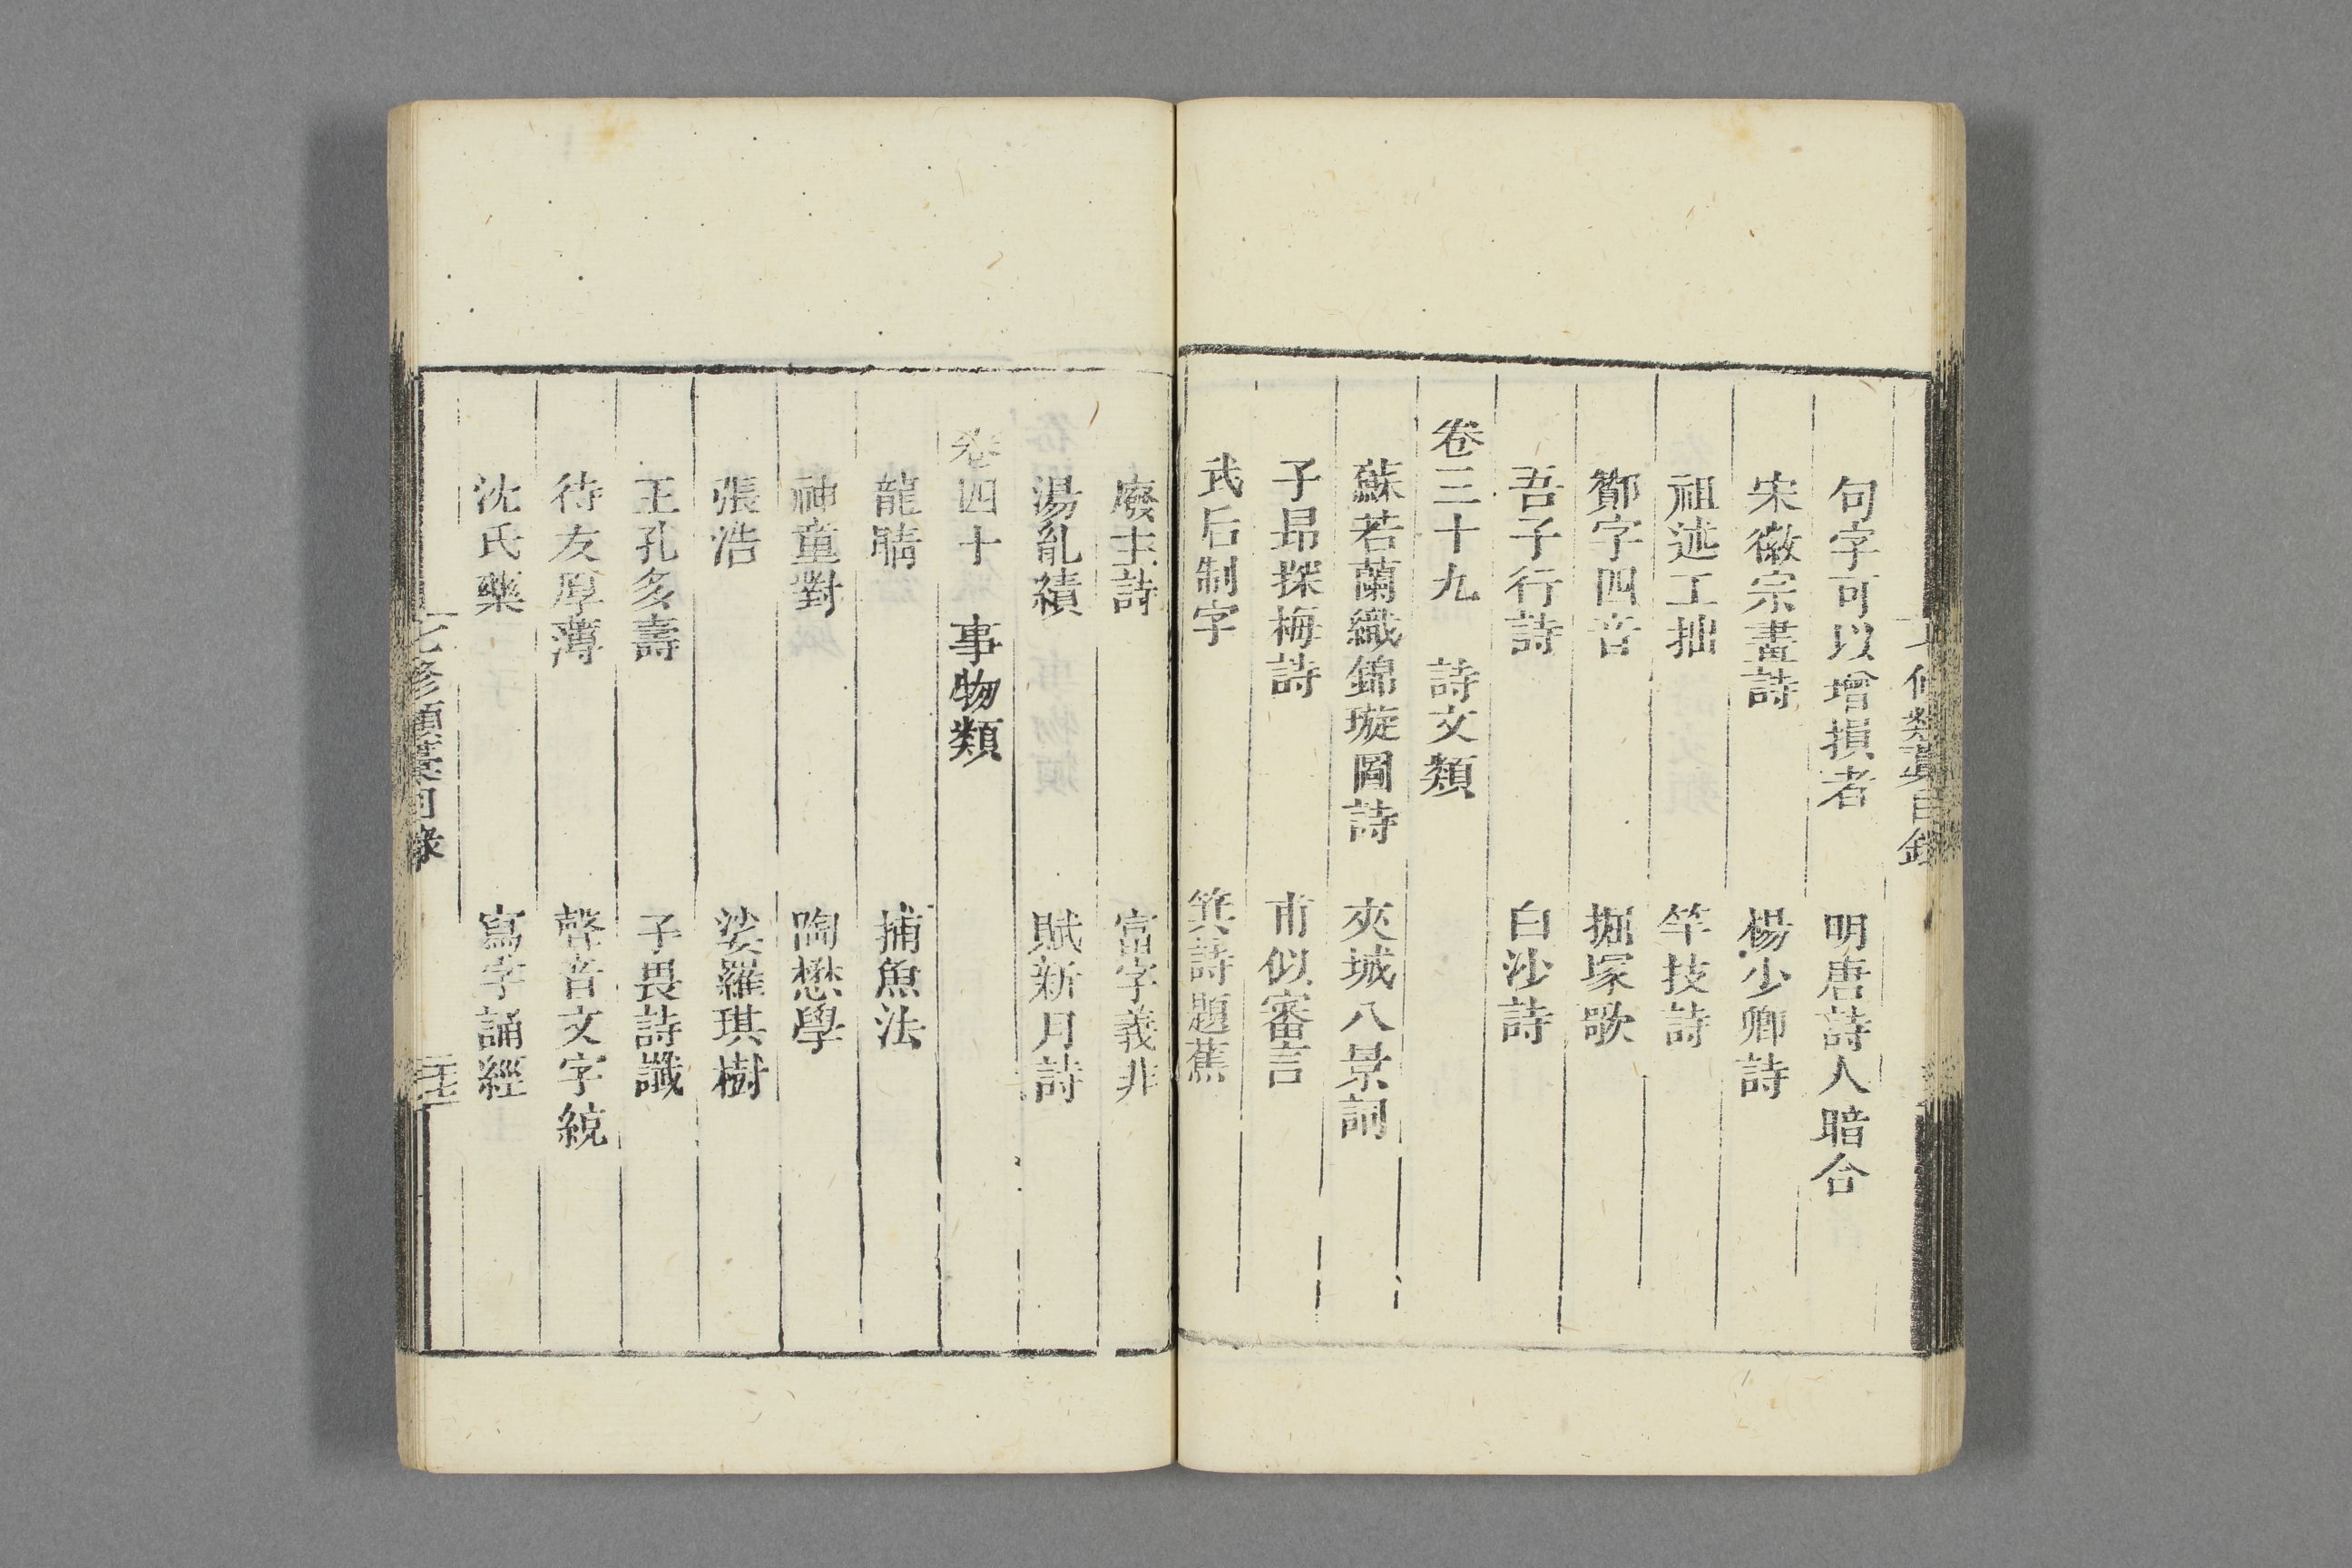 句字可以增損者　明唐詩人暗合
宋徽宗畫詩　楊少卿詩
祖述工拙　竿技詩
鄭字四音　掘塚歌
吾子行詩　白沙詩
卷三十九　詩文類
蘇若蘭織錦璇圖詩　夾城八景詞
子昻探梅詩　甫似審言
武后制字　箕詩題蕉
廢主詩　富字義非
湯亂績　賦新月詩
卷四十　事物類
龍睛　捕魚法
神童對　陶懋學
張浩　娑羅琪樹
王孔多壽　子畏詩讖
待友厚薄　聲音文字統
沈氏藥　寫字誦經
七修類稾目錄